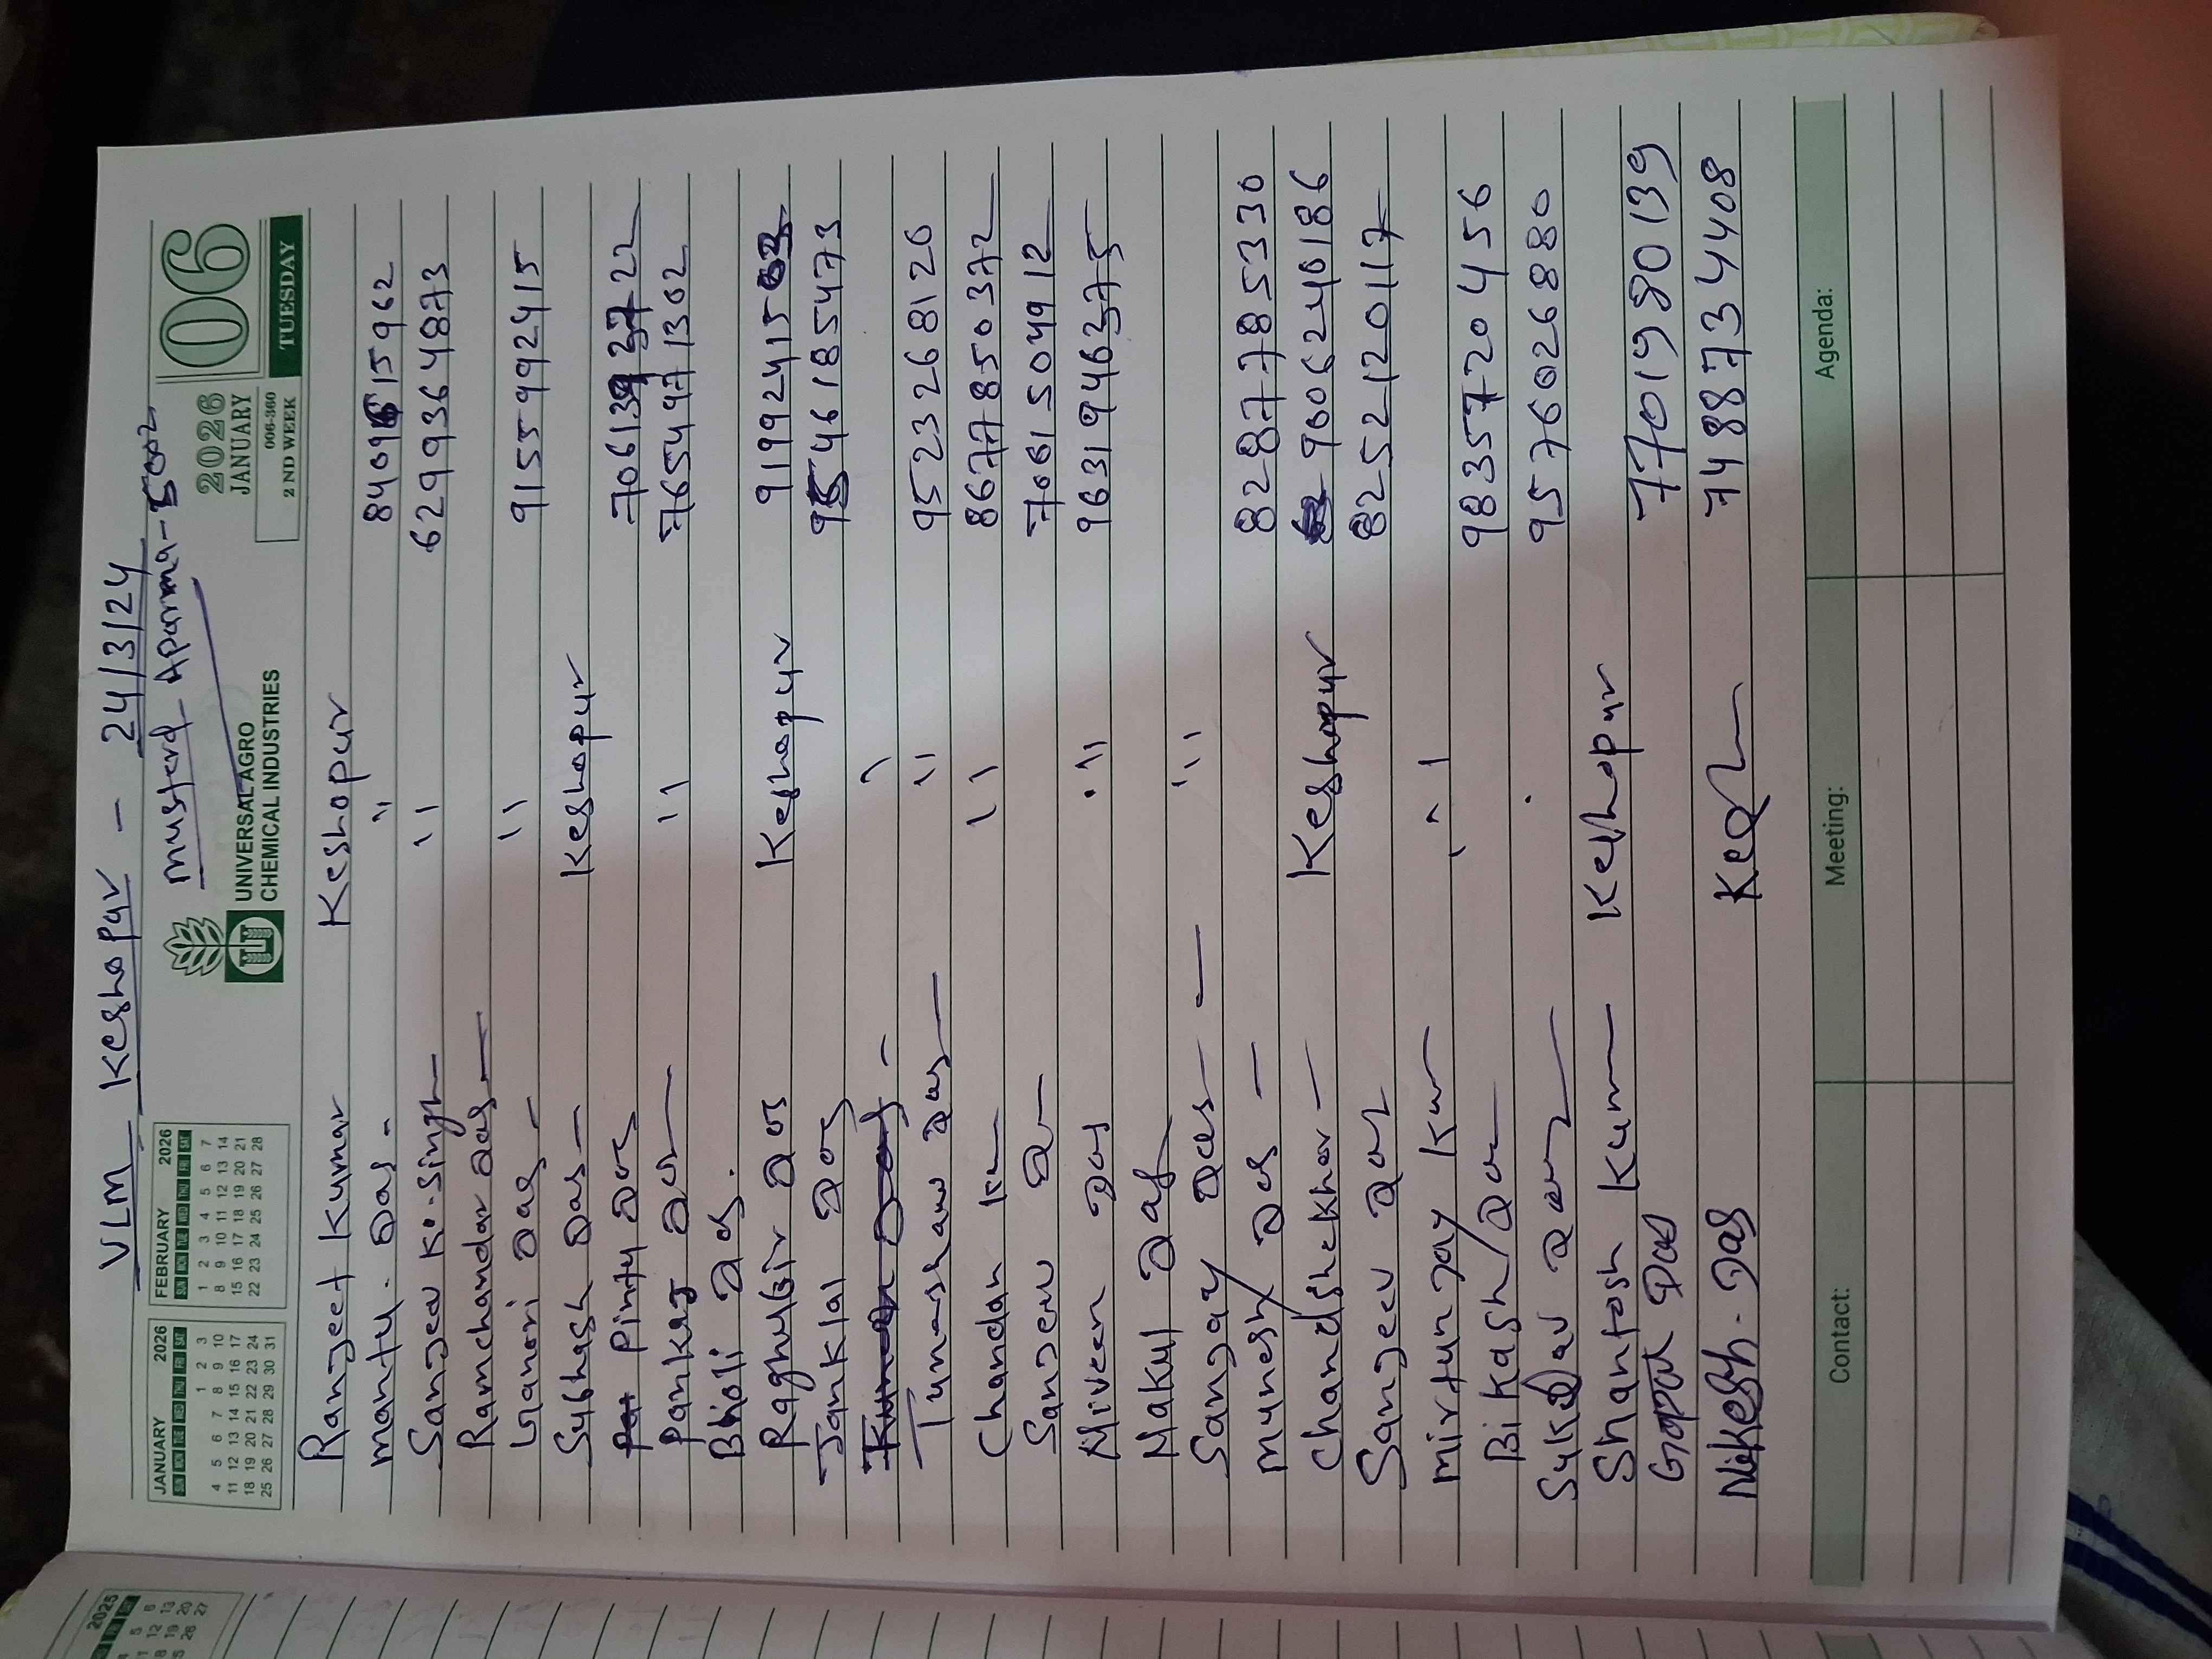 VLM Keshopur - 24/3/24
musterd Aparna-5002
JANUARY 2026
SUN MON TUE WED THU FRI SAT
1 2 3
4 5 6 7 8 9 10
11 12 13 14 15 16 17
18 19 20 21 22 23 24
25 26 27 28 29 30 31
FEBRUARY 2026
SUN MON TUE WED THU FRI SAT
1 2 3 4 5 6 7
8 9 10 11 12 13 14
15 16 17 18 19 20 21
22 23 24 25 26 27 28
UNIVERSAL AGRO
CHEMICAL INDUSTRIES
2026
JANUARY
006-360
2 ND WEEK
06
TUESDAY
Ranjeet Kumar Keshopur
mantu. Das - " 8409615962
Sanjeev Kr. Singh " 6299364873
Ramchandar Das
Ganori Das - " 9155992415
Subhash Das - Keshopur
Pintu Das 
Pankaj Das " 7654971302
Bholi Das.
Raghubir Das Keshopur
Janklal Das 9546185473
" 
Das " 9523268120
Chandan Kr " 8677850372
Sanjeev Das 7061504912
Das " 9631946375
Nakul Das
Sanjay Das - "
Munesh Das - 8287785330
Chandshekhar - Keshopur 9006240186
Sanjeev Das 8252120117
Mirtunjay Kum " 9835720456
Bikash Das 9576026880
Sukdav Das
Shantosh Kum Keshopur
Gopal Das 7701980139
Nikesh. Das Kesh 7488734408
Contact:
Meeting:
Agenda:
2025